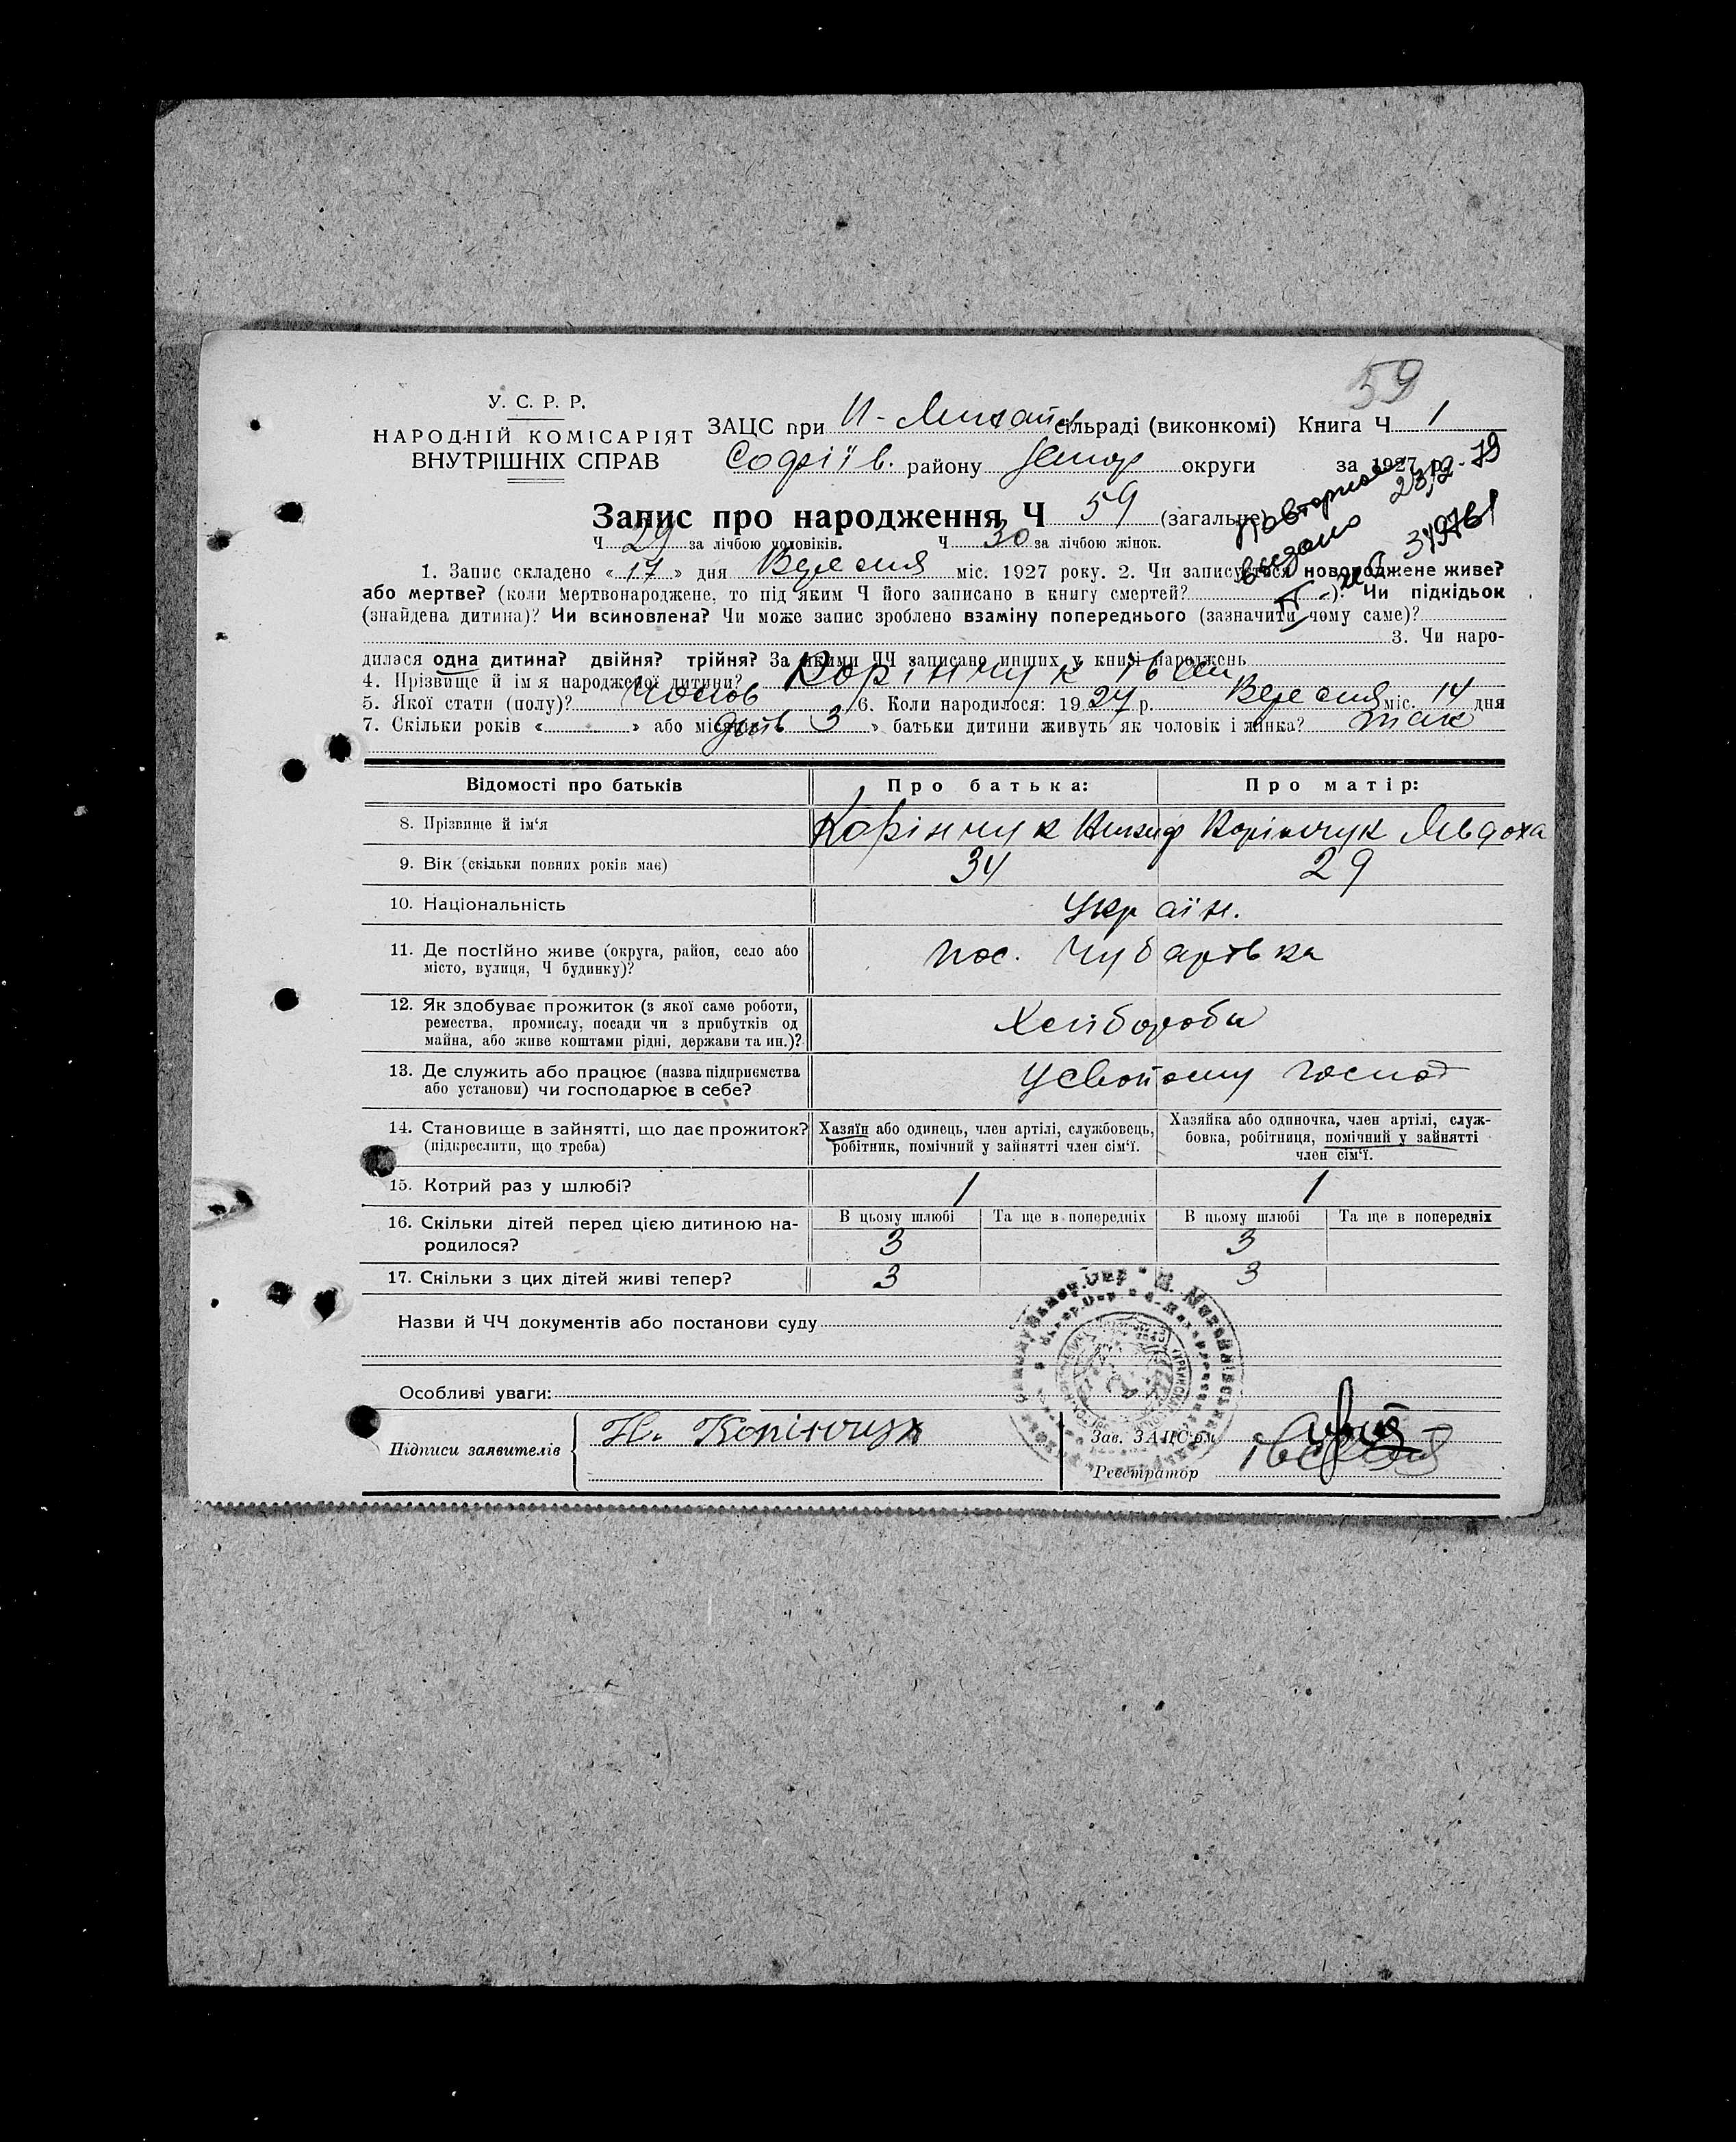 59
У. С. Р. Р.
НАРОДНІЙ КОМІСАРІЯТ
ВНУТРІШНІХ СПРАВ
ЗАЦС при сільраді (виконкомі) Книга Ч 1
Софіїв. району округи за 1927 р.
Повторное 23,2-79
выдано
Запис про народження Ч 59 (загальне)
Ч 29 за лічбою чоловіків. Ч 30 за лічбою жінок.
1. Запис складено « 17 » дня Вересня міс. 1927 року. 2. Чи записується новороджене живе?
або мертве? (коли мертвонароджене, то під яким Ч його записано в книгу смертей? ). Чи підкідьок
(знайдена дитина)? Чи всиновлена? Чи може запис зроблено взаміну попереднього (зазначити чому саме)?
3. Чи наро-
дилася одна дитина? двійня? трійня? За якими ЧЧ записано инших у книзі народжень
4. Прізвище й імя народженої дитини? Корінчук Іван
5. Якої стати (полу)? Чолов 6. Коли народилося: 1927 р. Вересня міс. 14 дня
7. Скільки років « » або місяців 3 » батьки дитини живуть як чоловік і жінка? так
Відомості про батьків
Про батька:
Про матір:
8. Прізвище й ім‘я Корінчук Корінчук Явдоха
9. Вік (скільки повних років має) 34 29
10. Національність Україн.
11. Де постійно живе (округа, район, село або
місто, вулиця, Ч будинку)?
пос. Чубарівка
12. Як здобуває прожиток (з якої саме роботи,
ремества, промислу, посади чи з прибутків од
майна, або живе коштами рідні, держави та ин.)?
Хлібороби
13. Де служить або працює (назва підприємства
або установи) чи господарює в себе?
У своїому господ
14. Становище в зайнятті, що дає прожиток?
(підкреслити, що треба)
Хазяїн або одинець, член артілі, службовець,
робітник, помічний у зайнятті член сім‘ї.
Хазяйка або одиночка, член артілі, служ-
бовка, робітниця, помічний у зайнятті
член сім‘ї.
15. Котрий раз у шлюбі? 1 1
16. Скільки дітей перед цією дитиною на-
родилося?
В цьому шлюбі Та ще в попередніх В цьому шлюбі Та ще в попередніх
3 3
17. Скільки з цих дітей живі тепер? 3 3
Назви й ЧЧ документів або постанови суду
Особливі уваги:
Підписи заявителів Н. Корінчук
Зав. ЗАЦС‘ом
Реєстратор